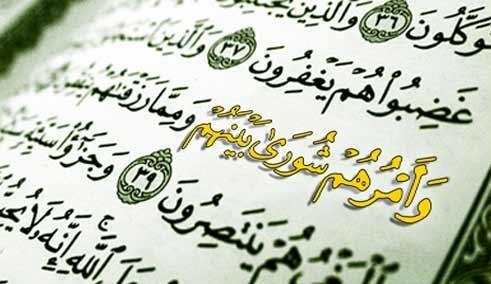 تَوَكَّلُونَ ٣٦ وَالَّذِينَ
غَضِبُوا هُمْ يَغْفِرُونَ ٣٧ وَالَّذِينَ
وَأَمْرُهُمْ شُورَىٰ بَيْنَهُمْ وَمِمَّا رَزَقْنَٰهُمْ
هُمْ يَنتَصِرُونَ ٣٩ وَجَزَٰٓؤُا۟
اللَّهِ إِنَّهُ لَا